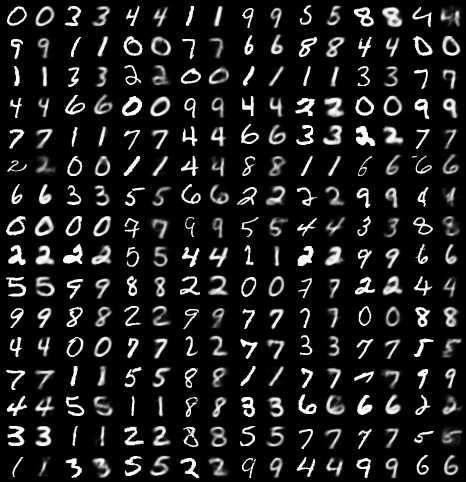 0 0 3 3 4 4 1 1 9 9 5 5 8 8 4 4
9 9 1 1 0 0 7 7 6 6 8 8 4 4 0 0
1 1 3 3 2 2 0 0 1 1 1 1 3 3 7 7
4 4 6 6 0 0 9 9 4 4 2 2 0 0 9 9
7 7 1 1 7 7 4 4 6 6 3 3 2 2 7 7
2 2 0 0 1 1 4 4 8 8 1 1 6 6 6 6
6 6 3 3 5 5 6 6 2 2 2 2 9 9 4 4
0 0 0 0 7 7 9 9 5 5 4 4 3 3 8 8
2 2 2 2 5 5 4 4 1 1 2 2 9 9 6 6
5 5 9 9 8 8 2 2 0 0 7 7 2 2 4 4
9 9 8 8 2 2 9 9 7 7 7 7 0 0 8 8
4 4 0 0 7 7 2 2 7 7 3 3 7 7 5 5
7 7 1 1 5 5 8 8 1 1 7 7 7 7 9 9
4 4 5 5 1 1 8 8 3 3 6 6 6 6 2 2
3 3 1 1 2 2 8 8 5 5 7 7 7 7 5 5
1 1 3 3 5 5 2 2 9 9 4 4 9 9 6 6